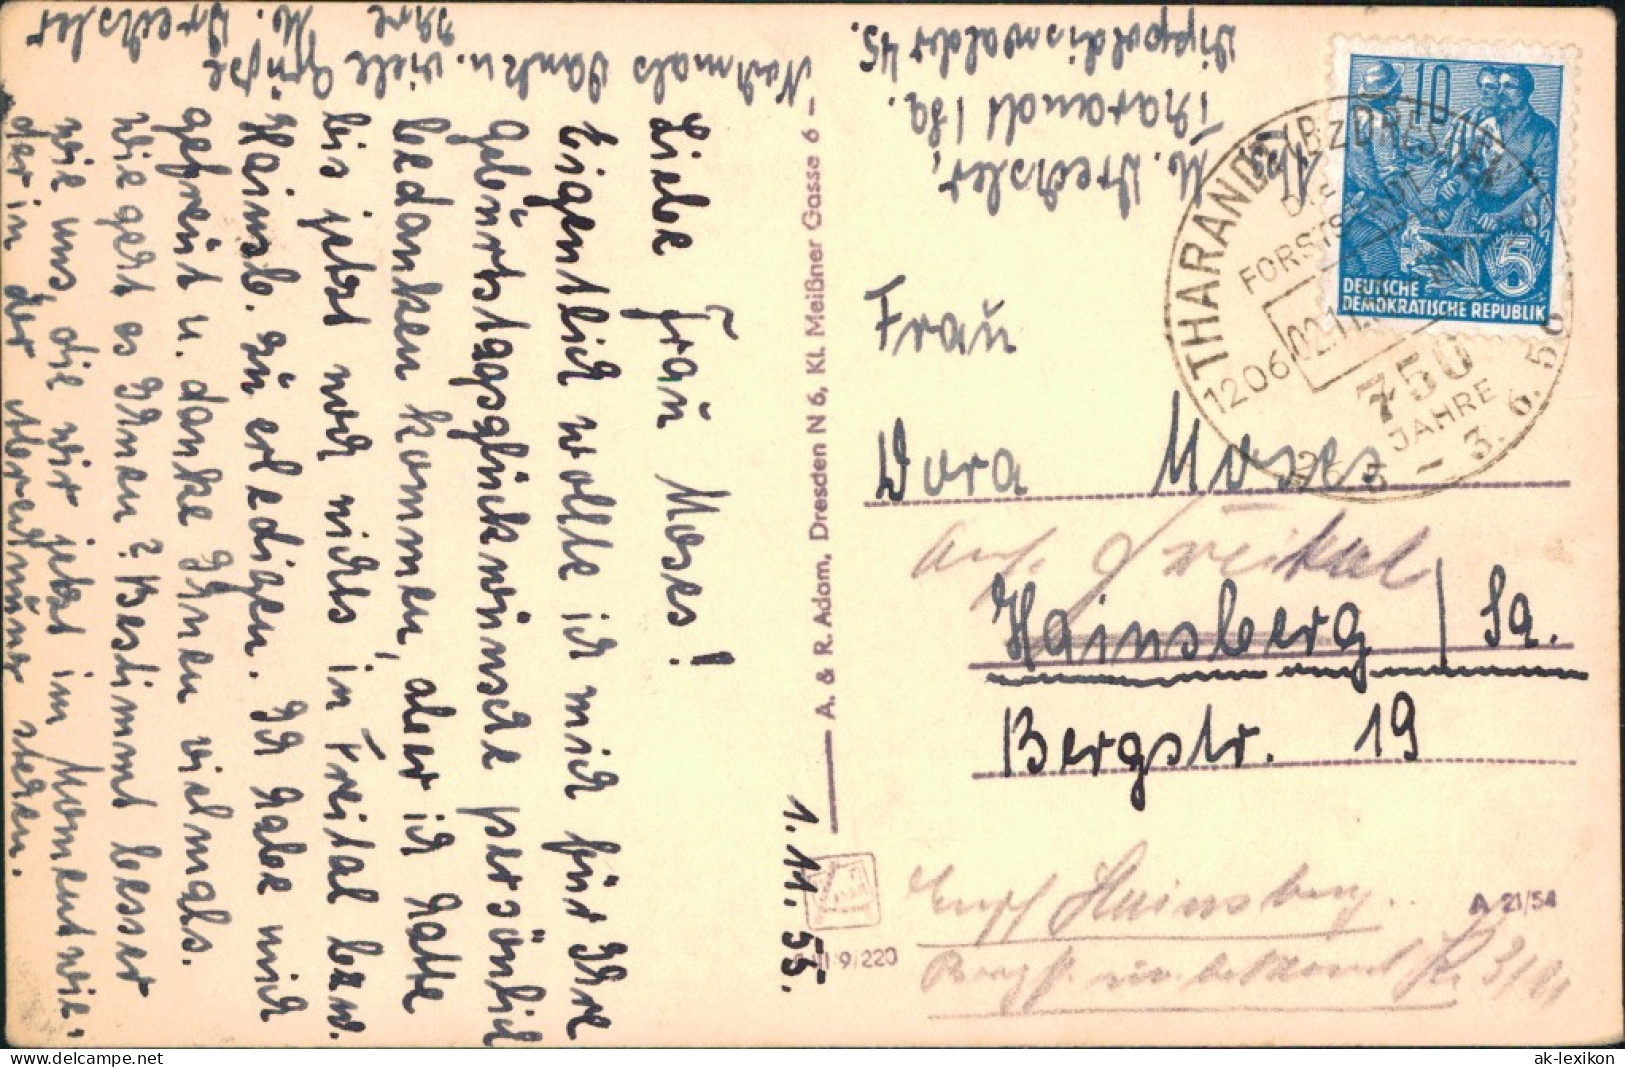 Liebe Frau Moses!
Eigentlich wollte ich mich für Ihre
Geburtstagsglückwünsche persönlich
bedanken kommen, aber ich hatte
bis jetzt noch nichts in Freital bzw.
Hainsb. zu erledigen. Ich habe mich
gefreut u. danke Ihnen vielmals.
Wie geht es Ihnen? Bestimmt besser
wie uns, die wir jetzt im Moment wie-
der in der stehen.
Nochmals Dank u. viele Grüße
Ihre
M. Drechsler
1. 11. 55.
A. & R. Adam, Dresden N 6, Kl. Meißner Gasse 6
M. Drechsler,
Tharandt / Sa.
Dippoldiswalder 45.
10
5
DEUTSCHE
DEMOKRATISCHE REPUBLIK
THARANDT (BZ DRESDEN)
DIE
FORSTSTADT
02.11.
1206
750
JAHRE
26. 5 - 3. 6. 56
Frau
Dora Moses
Freital
Hainsberg / Sa.
Bergstr. 19
Hainsberg.
unbekannt
A 21/54
III/9/220
ak-lexikon